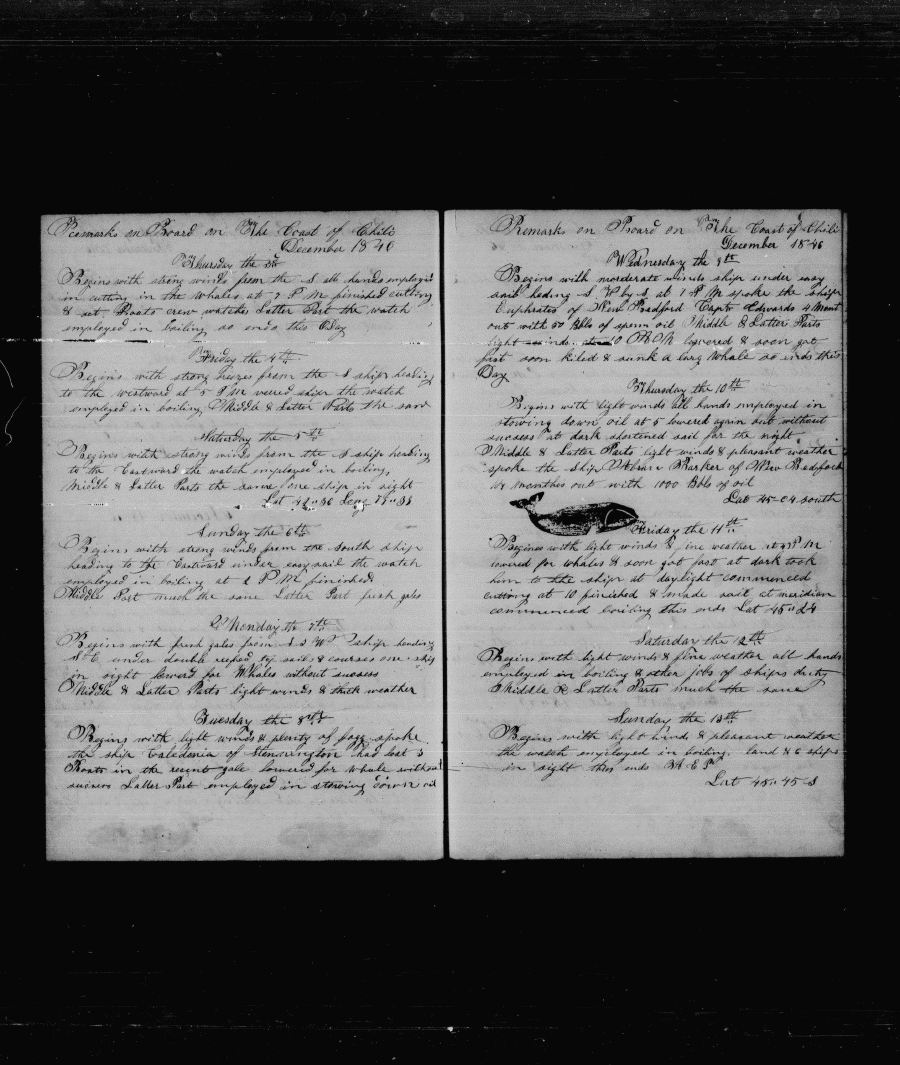 Remarks on Board on The Coast of Chili
December 1846
Thursday the 3d
Begins with strong winds from the S all hands employed
in cutting in the Whales at 7 P M finished cutting
& set Boats crew watches Latter Part the watch
employed in boiling so ends this Day
Friday the 4th
Begins with strong breezes from the S ship heading
to the westward at 5 P M veered ship the watch
employed in boiling Middle & Latter Parts the same
Saturday the 5th
Begins with strong winds from the S ship heading
to the Eastward the watch employed in boiling,
Middle & Latter Parts the same one ship in sight
Lat Long
Sunday the 6th
Begins with strong winds from the South ship
heading to the Eastward under easy sail the watch
employed in boiling at 2 P M finished
Middle Part much the same Latter Part fresh gales
Monday the 7th
Begins with fresh gales from S S W ship heading
S E under double reefed top sails & courses one ship
in sight lowerd for Whales without success
Middle & Latter Parts light winds & thick weather
Tuesday the 8th
Begins with light winds & plenty of fogg spoke
the ship Caledonia of Stonnington had lost 3
Boats in the resent gale lowered for Whale without
success Latter Part employed in stowing down oil
Remarks on Board on The Coast of Chili
December 1846
Wednesday the 9th
Begins with morderate winds ship under easy
sail heading S W by S at 1 P M spoke the ship
Euphrates of New Bedford Capt Edwards 4 Mont
out with 50 Bbls of sperm oil Middle & Latter Parts
light winds 10 A M lowered & soon got
fast soon killed & sunk a larg Whale so ends this
Day
Thursday the 10th
Begins with light winds all hands employed in
stowing down oil at 5 lowered again but without
success at dark shortened sail for the night
Middle & Latter Parts light winds & pleasant weather
spoke the ship Barker of New Bedford
monthes out with 1000 Bbls of oil
Lat 45-04 South
Friday the 11th
Begines with light winds & fine weather at P M
lowered for whales & soon got fast at dark took
him to the ship at daylight commenced
cutting at 10 finished & made sail at meridian
commenced boiling this ends Lat 45"24
Saturday the 12th
Begins with light winds & fine weather all hands
employed in boiling & other jobs of ships duty
Middle & Latter Parts much the same
Sunday the 13th
Begins with light winds & pleasant weather
the watch employed in boiling. land & 6 ships
in sight this ends
Lat 45"45 S